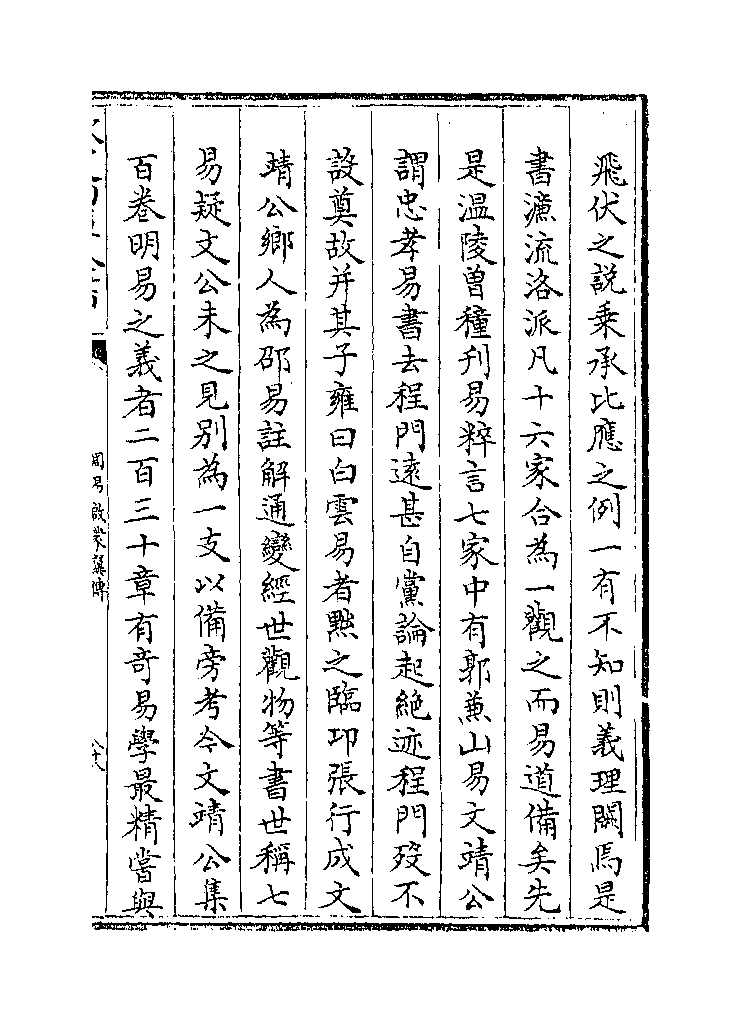 飛伏之說乗承比應之例一有不知則義理闕焉是
書濂流洛派凡十六家合為一觀之而易道備矣先
是温陵曾穜刋易粹言七家中有郭兼山易文靖公
謂忠孝易書去程門逺甚自黨論起絶迹程門歿不
設奠故并其子雍曰白雲易者黙之臨卭張行成文
靖公鄉人為邵易註解通變經世觀物等書世稱七
易疑文公未之見别為一支以備旁考今文靖公集
百卷明易之義者二百三十章有竒易學最精嘗與
周易啟蒙翼傳